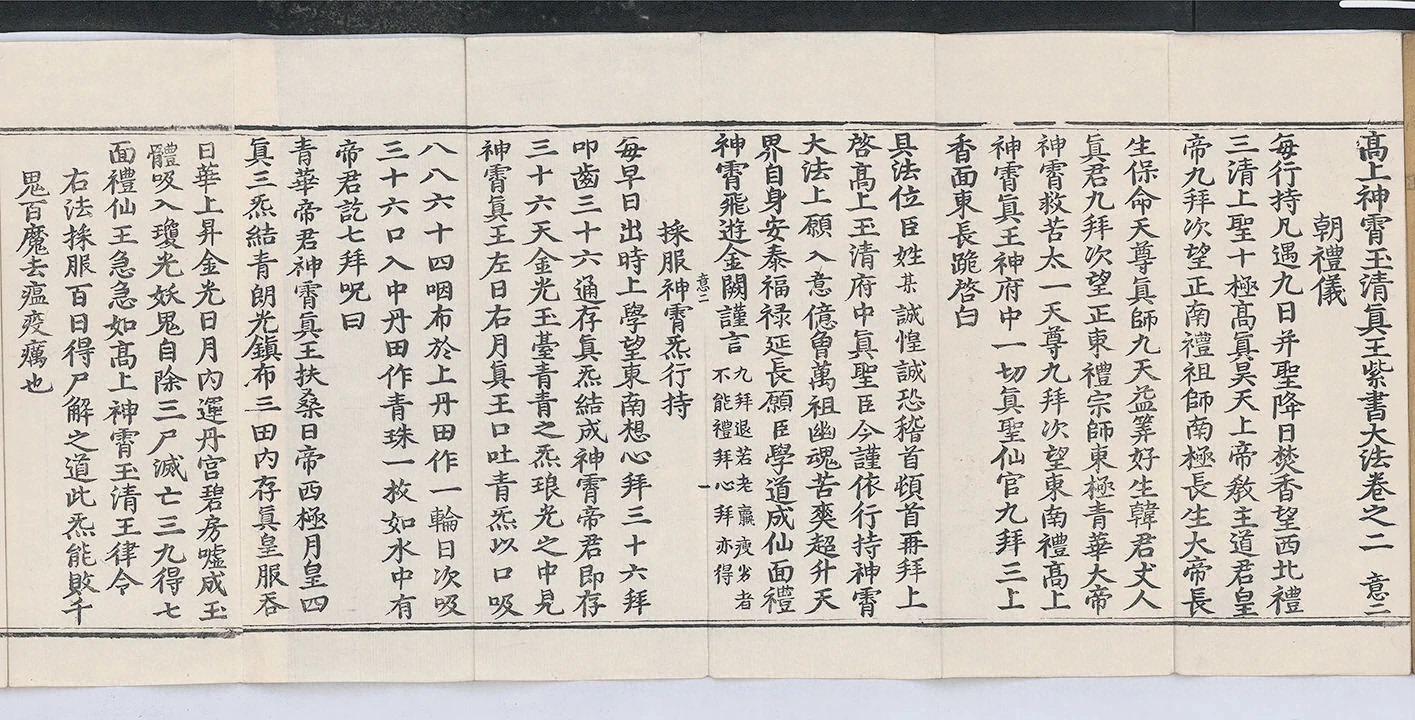 髙上神霄玉清真王紫書大法卷之二　意二
朝禮儀
每行持凡遇九日并聖降日焚香望西北禮
三清上聖十極髙真昊天上帝教主道君皇
帝九拜次望正南禮祖師南極長生大帝長
生保命天尊真師九天益筭好生韓君丈人
真君九拜次望正東禮宗師東極青華大帝
神霄救苦太一天尊九拜次望東南禮髙上
神霄真王神府中一切真聖仙官九拜三上
香面東長跪啓白
具法位臣姓某誠惶誠恐稽首頓首再拜上
啓髙上玉清府中真聖臣今謹依行持神霄
大法上願入意億曾萬祖幽魂苦爽超升天
界自身安泰福禄延長願臣學道成仙面禮
神霄飛遊金闕謹言九拜退若老羸瘦劣者
不能禮拜心拜亦得
意二
一
採服神霄炁行持
每早日出時上學望東南想心拜三十六拜
叩齒三十六通存真炁結成神霄帝君即存
三十六天金光玉臺青青之炁琅光之中見
神霄真王左日右月真王口吐青炁以口吸
八八六十四咽布於上丹田作一輪日次吸
三十六口入中丹田作青珠一枚如水中有
帝君訖七拜呪曰
青華帝君神霄真王扶桑日帝西極月皇四
真三炁結青朗光鎮布三田内存真皇服吞
日華上昇金光日月内運丹宫碧房嘘成玉
體吸入瓊光妖鬼自除三尸滅亡三九得七
面禮仙王急急如髙上神霄玉清王律令
右法採服百日得尸解之道此炁能敗千
鬼百魔去瘟疫癘也